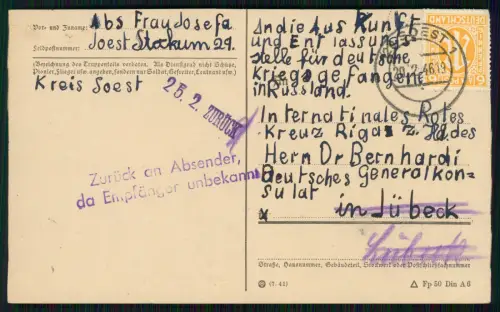 Vor- und Zuname:
Abs Frau Josefa
Feldpostnummer:
Soest Stockum 29.
(Bezeichnung des Truppenteils verboten. Als Dienstgrad nicht Schütze,
Pionier, Flieger usw. angeben, sondern nur Soldat, Gefreiter, Leutnant usw.)
Kreis Soest
25.2. ZURÜCK
Zurück an Absender,
da Empfänger unbekannt
An die Auskunft
und Entlassungs
stelle für deutsche
Kriegsgefangene
in Russland.
Internationales Rotes
Kreuz Riga z. Hd des
Herrn Dr Bernhardi
Deutsches Generalkon=
sulat
in Lübeck
Lübeck
Straße, Hausnummer, Gebäudeteil, Stockwerk oder Postschließfachnummer
(7. 41)
Fp 50 Din A 6
DEUTSCHLAND
SOEST 1